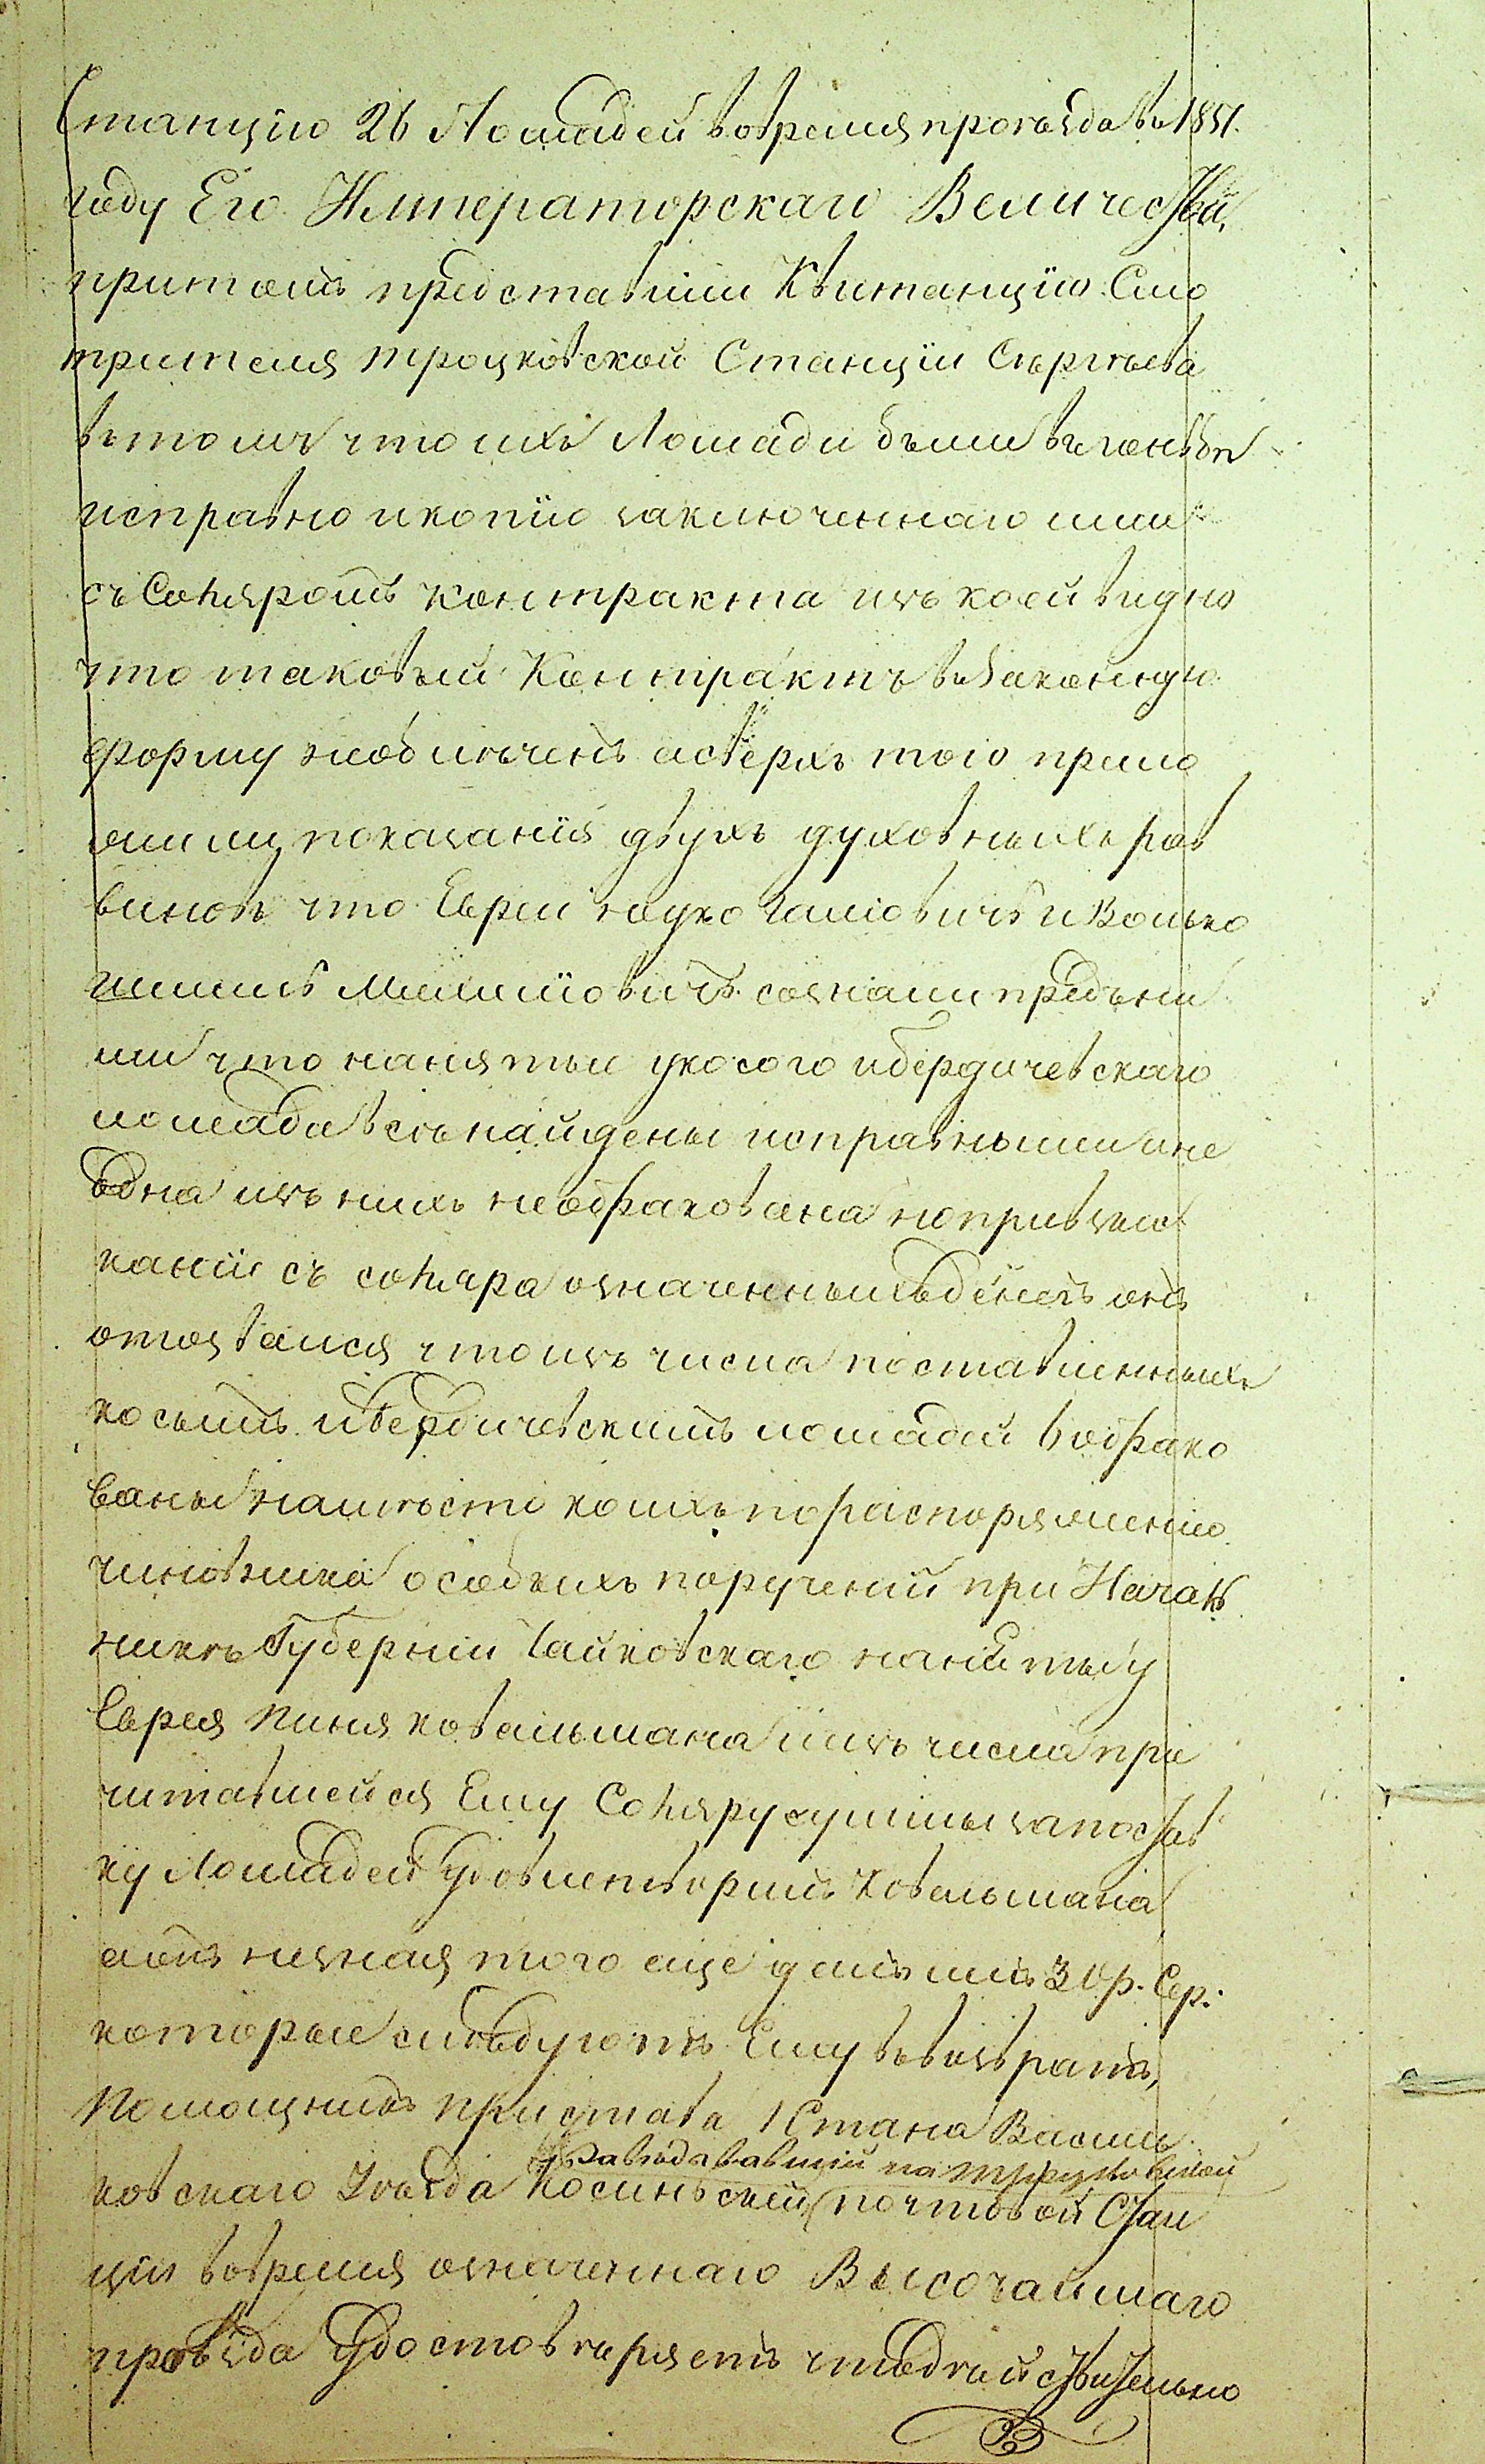 Станцію 26 Лошадей вовремя проѣзда въ 1851.
году Его Императорскаго Величества,
притомъ представили Квитанцію Смо
трителя Троцковской Станціи Сергѣева
въ томъ что ихъ Лошади были въ гоньбѣ
исправно и копію заключеннаго ими
съ Сотляромъ контракта изъ коей видно
что таковый Контрактъ въ Законную
форму необлѣченъ а сверхъ того прило
жили показанія двухъ духовныхъ рав
виновъ что Евреи Мошковичъ и Волько
сознали предъ ни
ми что нанятые у Косого и Бердичевскаго
лошади всѣ найдены исправными и не
одна изъ нихъ необракована но при взыс
каніи съ Сотляра означенныхъ денегъ онъ
отозвался что изъ числа поставленныхъ
Косымъ и Бердичевскимъ лошадей 6 обрако
ваны на мѣсто коихъ по распоряженію
чиновника особыхъ порученій при Началь
никѣ Губерніи Чайковскаго наняты у
Еврея Пиня Ковальмана и изъ числа при
читавшейся Ему Сотляру суммы за постав
ку Лошадей удовлетворилъ Ковальмана
а онъ незная того еще далъ имъ 30 р. сер.
которые слѣдуютъ Ему въ возвратъ,
Помощникъ Пристава 1 Стана Василь
завѣдававшій на
ковскаго Уѣзда Косинскій почтовой Стан
ціи вовремя означеннаго Высочайшаго
проѣзда удостовѣряетъ что дѣйствительно